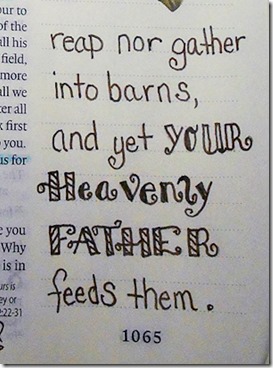 our to
of the
all his
field,
more
all we
ter all
k first
you.
is for
e you
Why
is in
urs is
ey or
2:22-31
reap nor gather
into barns,
and yet YOUR
Heavenly
FATHER
feeds them.
1065